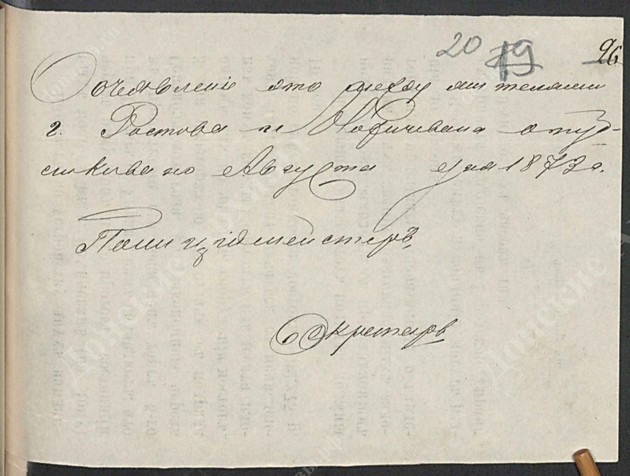 20 19 96
Объявленіе это между жителями
г. Ростова и Нахичевана опуб-
ликовано Августа дня 1873 г.
Полицiймейстеръ
Секретарь